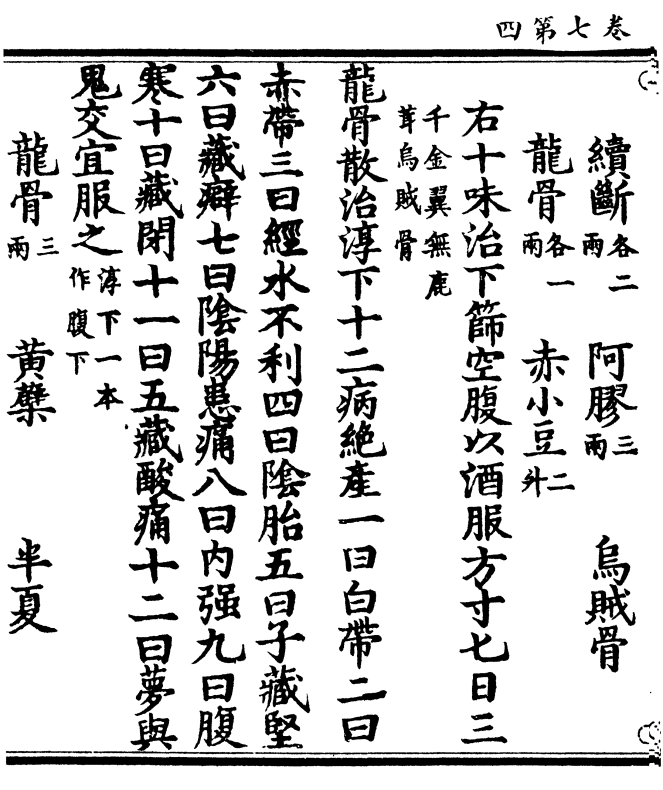 卷七第四
續斷各二兩 阿膠三兩 烏賊骨
龍骨各一兩 赤小豆二升
右十味治下篩空腹以酒服方寸七日三
千金翼無鹿
茸烏賊骨
龍骨散治淳下十二病絕產一曰白帶二曰
赤帶三曰經水不利四曰陰胎五曰子藏堅
六曰藏癖七曰陰陽患痛八曰內强九曰腹
寒十曰藏閉十一曰五藏酸痛十二曰夢與
鬼交宜服之淳下一本作腹下
龍骨三兩 黃蘗 半夏